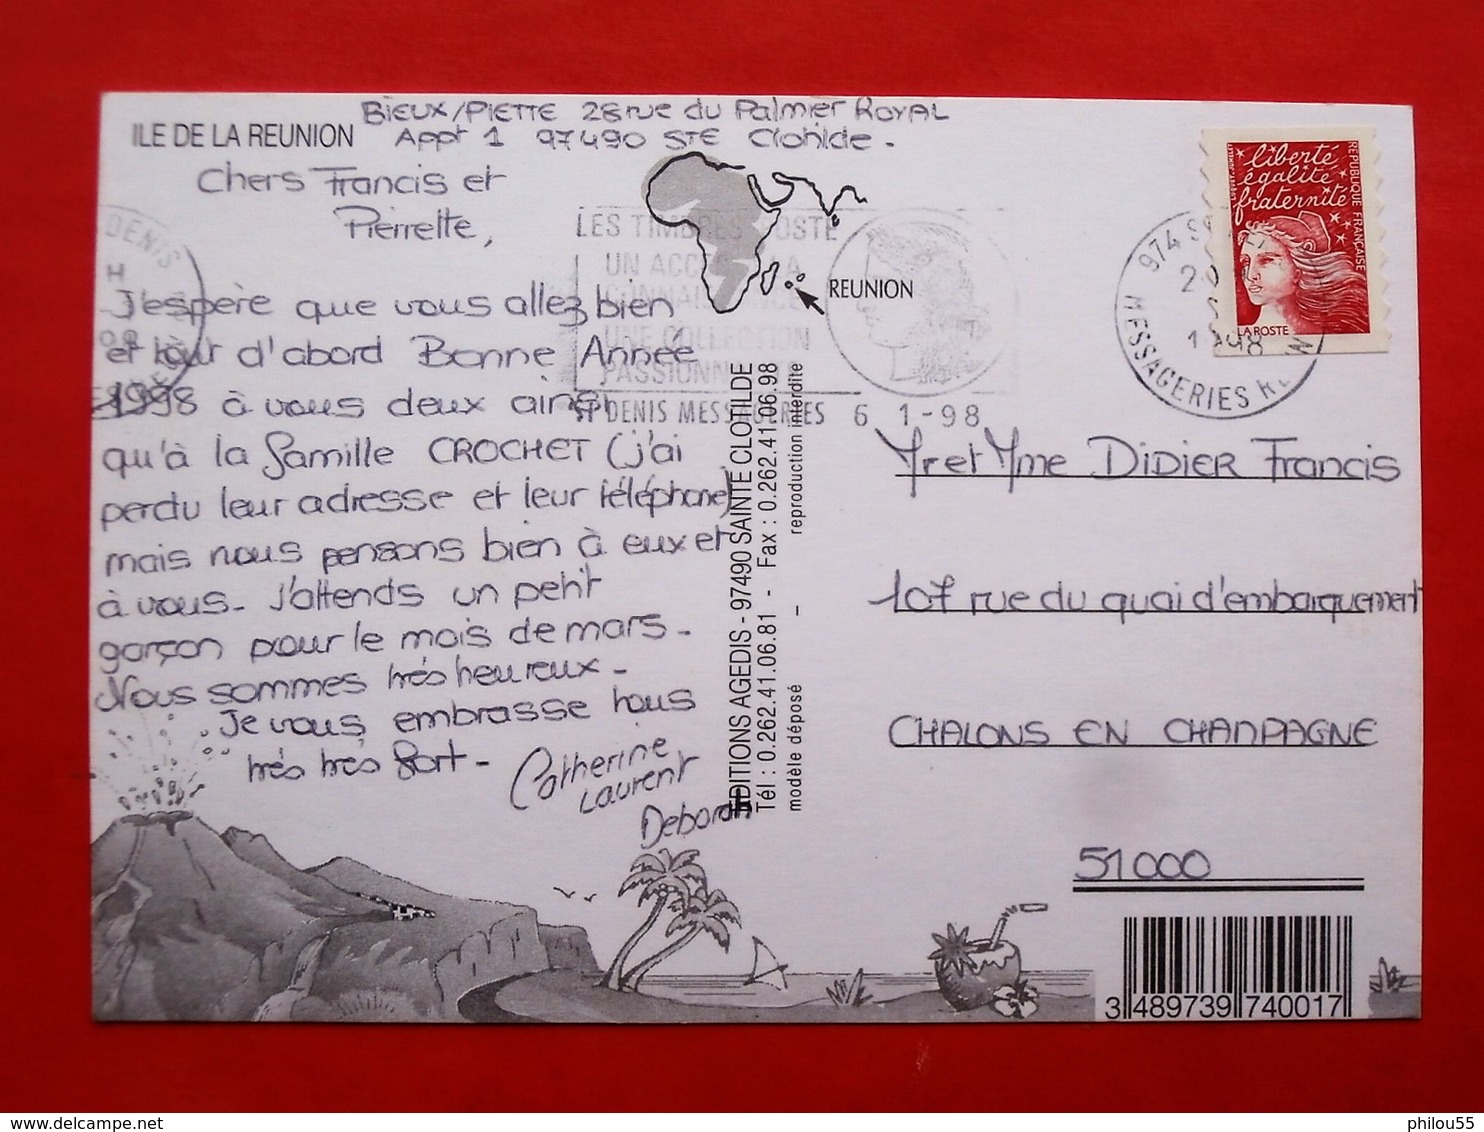 BIEUX/PIETTE 28 rue du Palmier ROYAL
Appt 1 97490 STE Clotilde.
ILE DE LA REUNION
Chers Francis et
Pierrette,
J'espère que vous allez bien
et tout d'abord Bonne Année
1998 à vous deux ainsi
qu'à la famille CROCHET (j'ai
perdu leur adresse et leur téléphone)
mais nous pensons bien à eux et
à vous. J'attends un petit
garçon pour le mois de mars.
Nous sommes très heureux.
Je vous embrasse tous
très très fort.
Catherine
Laurent
Deborah
REUNION
LES TIMBRES POSTE
UN ACCES A LA
CONNAISSANCE
UNE COLLECTION
PASSIONNANTE
ST DENIS MESSAGERIES 6 1-98
DENIS
EDITIONS AGEDIS - 97490 SAINTE CLOTILDE
Tél : 0.262.41.06.81 - Fax : 0.262.41.06.98
modèle déposé – reproduction interdite
liberté
égalité
fraternité
REPUBLIQUE FRANÇAISE
LA POSTE
974
MESSAGERIES
Mr et Mme DIDIER Francis
107 rue du quai d'embarquement
CHALONS EN CHAMPAGNE
51000
3 489739 740017
philou55